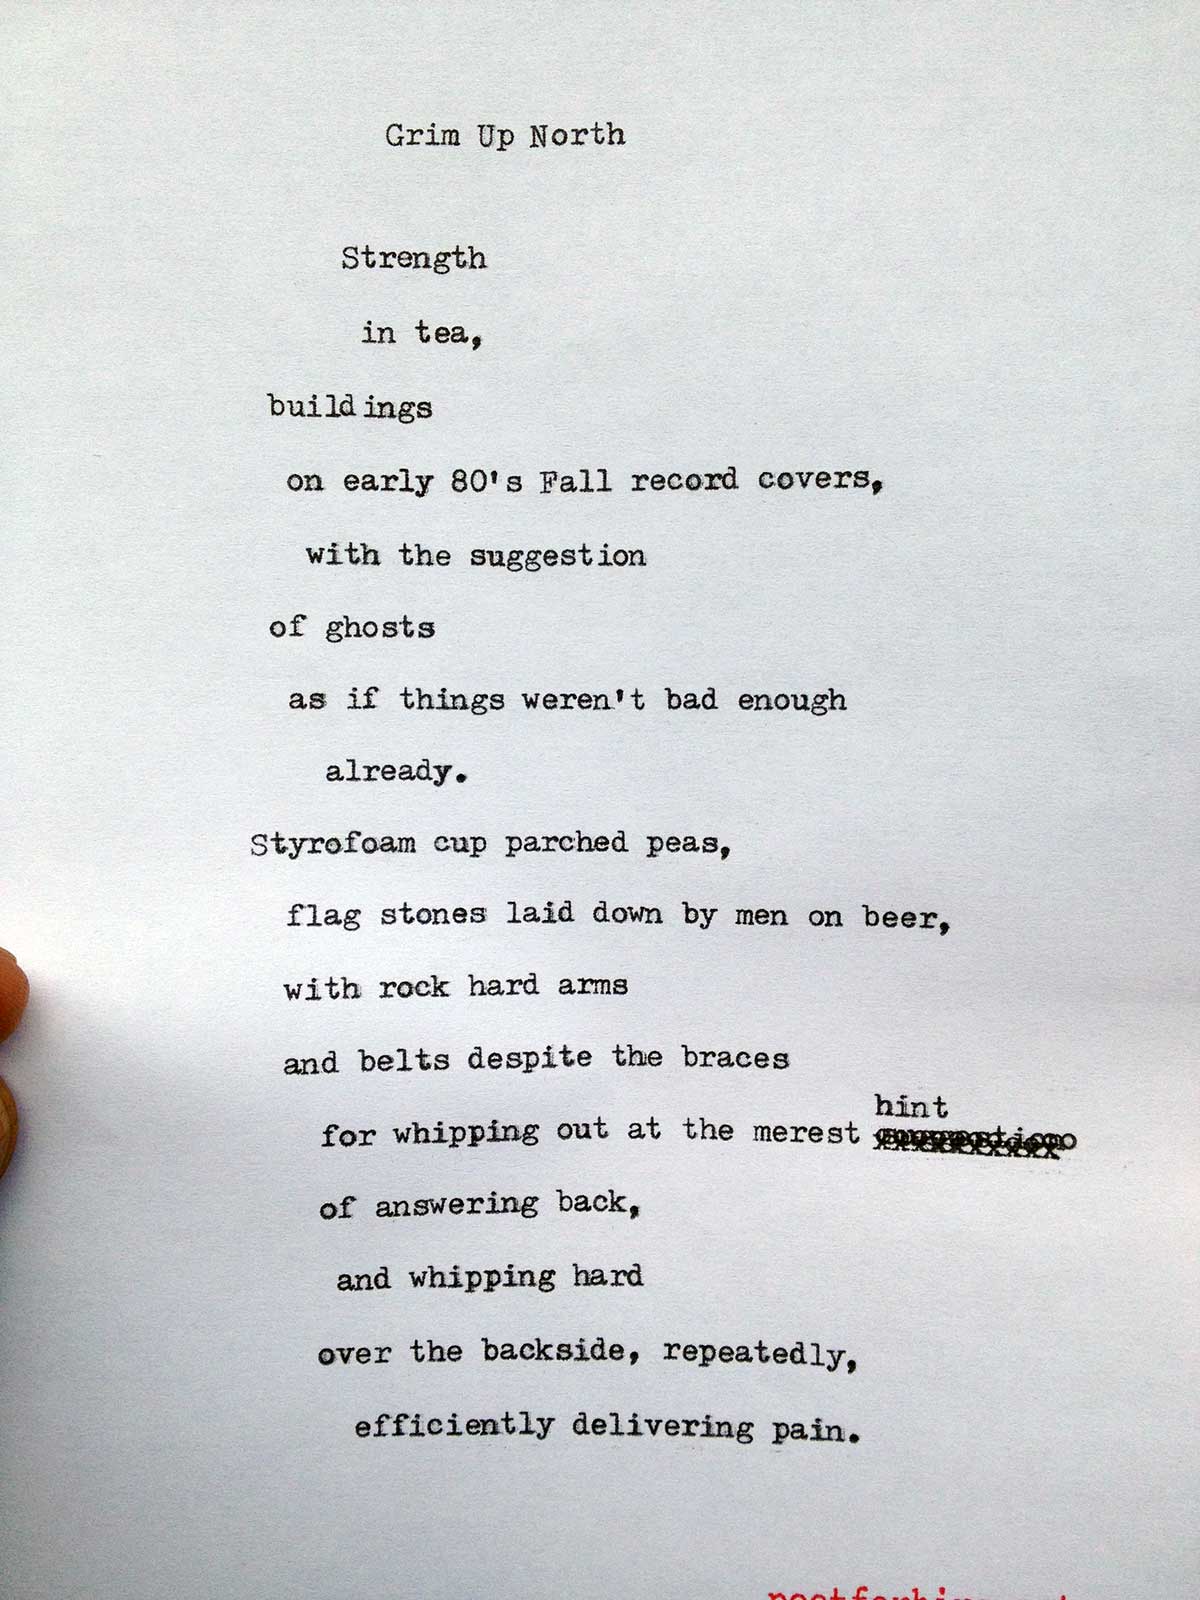 Grim Up North
Strength
in tea,
buildings
on early 80's Fall record covers,
with the suggestion
of ghosts
as if things weren't bad enough
already.
Styrofoam cup parched peas,
flag stones laid down by men on beer,
with rock hard arms
and belts despite the braces
hint
for whipping out at the merest
of answering back,
and whipping hard
over the backside, repeatedly,
efficiently delivering pain.